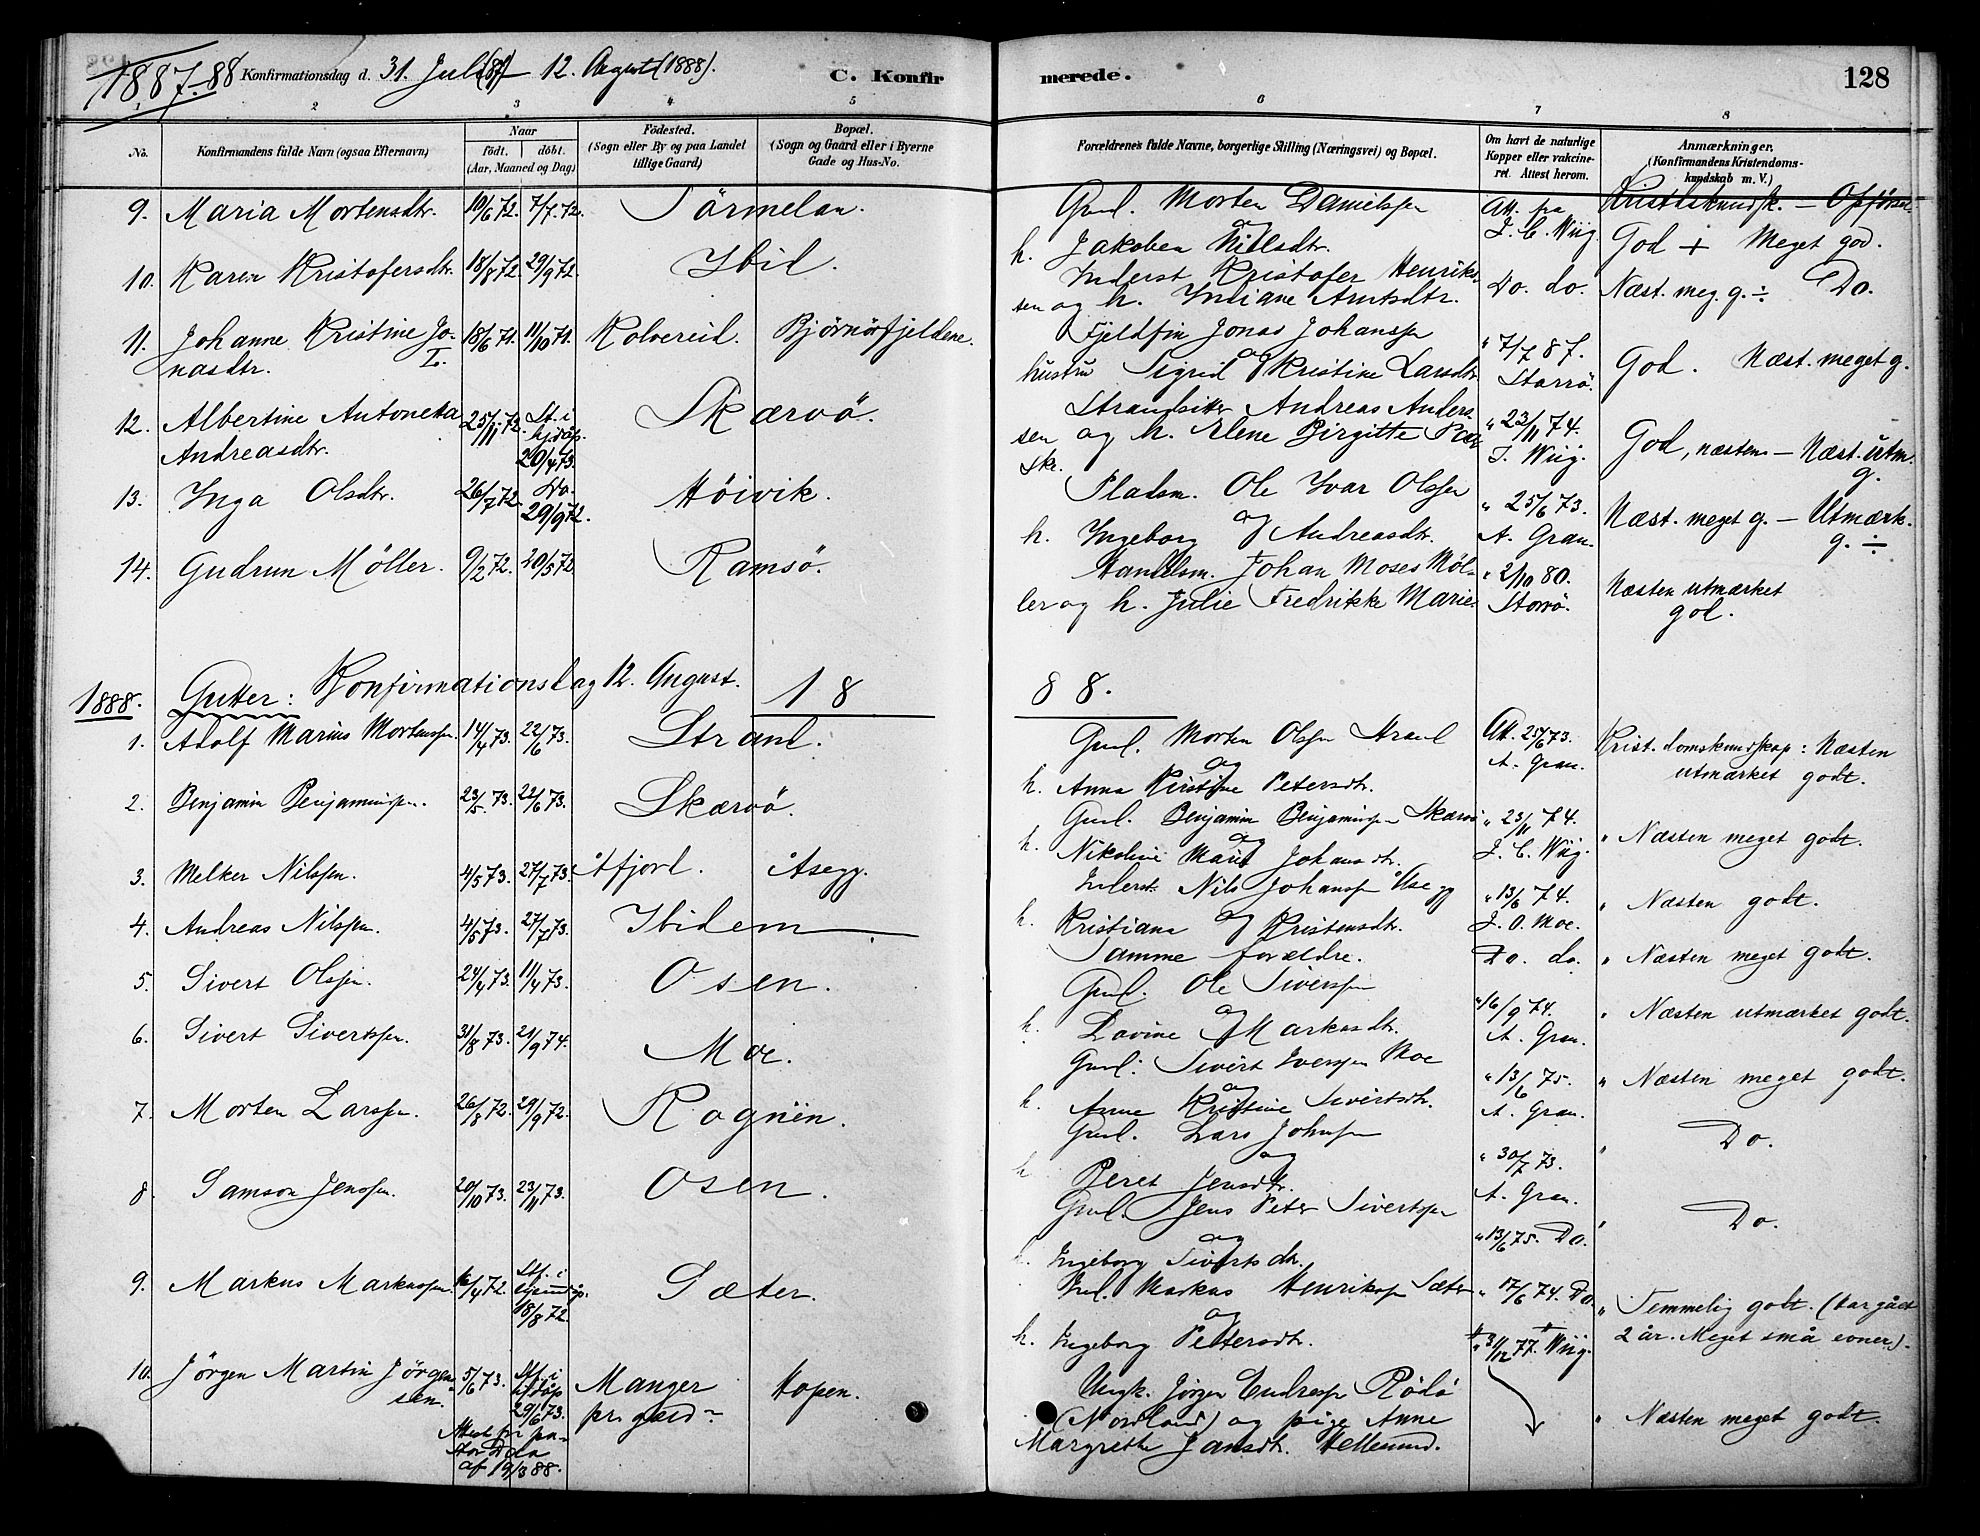 1887-88 Konfirmationsdag d. 31. Juli (87) 12. August (1888). C. Konfirmerede. 128
2 3 4 5 6 7 8
No. Konfirmandens fulde Navn (ogsaa Efternavn) Naar födt. döbt. (Aar, Maaned og Dag) Födested. (Sogn eller By og paa Landet tillige Gaard) Bopæl. (Sogn og Gaard eller i Byerne Gade og Hus-No. Forældrenes fulde Navne, borgerlige Stilling (Næringsvei) og Bopæl. Om havt de naturlige Kopper eller vaccineret. Attest herom. Anmærkninger. (Konfirmandens Kristendomskundskab m. V.)
9. Maria Mortensdtr. 10/6 72. 7/7 72. Sörmelan. Gml. Morten Danielssen og h. Jakobea Nilsdtr. Att. fra J. C. Wiig. Kristdskundsk. — Opførsel. God + Meget god.
10. Karen Kristofersdtr. 18/8 72. 29/9 72. Ibid. Inderst Kristofer Henrikssen og h. Indiane Arntsdtr. Do. do. Næst. meg. g. ÷ Do.
11. Johanne Kristine Jonasdtr. 18/6 71. 11/10 71. Kolvereid. Bjørnørfjeldene. Fjeldfin Jonas Johanssen og hustru Sigrid Kristine Larsdtr. " 7/7 87. Storrö. God. Næst. meget g.
12. Albertine Antoneta Andreasdtr. 25/11 72. St. i hj.döp. 20/4 73. Skærvö. Strandsitter Andreas Anderssen og h. Elene Birgitte " 23/11 74. J. Wiig. God, næsten — Næst. utm. g.
13. Inga Olsdtr. 26/7 72. Do. 29/9 72. Höivik. Pladsm. Ole Ivar Olssen og h. Ingeborg Andreasdtr. " 25/6 73. A. Gran. Næst. meget g. — Utmærk. g. ÷
14. Gudrun Möller. 9/2 72. 20/5 72. Ramsö. Handelsm. Johan Moses Möller og h. Julie Fredrikke Marie. " 2/10 80. Storrö. Næsten utmærket god.
1888. Gutter: Konfirmationsdag 12. August. 1888.
1. Adolf Marius Mortenssen. 14/4 73. 22/6 73. Strand. Gml. Morten Olssen Strand og h. Anna Kirstine Petersdtr. Att. 25/6 73. A. Gran. Krist.domskundskap: Næsten utmærket godt.
2. Benjamin Benjaminssen. 23/5 73. 22/6 73. Skærvö. Gml. Benjamin Benjaminssen Skærvö og h. Nikoline Marie Johansdtr. " 23/11 74. J. C. Wiig. " Næsten meget godt.
3. Melker Nilssen. 4/5 73. 27/7 73. Åfjord. Åsegg. Inderst Nils Johanssen Åsegg og h. Kristiana Kristensdtr. " 13/6 74. J. O. Moe. " Næsten godt.
4. Andreas Nilssen. 4/5 73. 27/7 73. Ibidem — Samme forældre. Do. do. " Næsten meget godt.
5. Sivert Olssen. 24/4 73. 11/4 73. Osen. Gml. Ole Siverssen og h. Lovine Markusdtr. " 16/9 74. A. Gran. " Næsten utmærket godt.
6. Sivert Sivertssen. 31/8 73. 21/9 74. Moe. Gml. Sivert Iverssen Moe og h. Anne Kristine Sivertsdtr. " 13/6 75. A. Gran. " Næsten meget godt.
7. Morten Larssen. 26/8 72. 29/9 72. Ragnin. Gml. Lars Johnssen og h Beret Jensdtr. " 30/7 73. A. Gran. " Do.
8. Samson Jenssen. 20/10 73. 23/11 73. Osen. Gml. Jens Peter Sivertssen og h. Ingeborg Sivertsdtr. " 13/6 75. Do. " Do.
9. Markus Markussen. 16/4 72. St. i hjemdöp. 18/8 72. Sæter. Gml. Markus Henrikssen Sæter og h. Ingeborg Petersdtr. " 17/6 74. Do. " Temmelig godt. (har gået 2 år. Meget små evner).
10. Jörgen Martin Jörgensen. 5/6 73. St. i hj.döp 29/6 73. Attest fra pastor Dela af 19/3 88. Manger pr.gæld. Hopen. Ungk. Jörgen Endressen Rödö (Nordland) og pige Anne Margrethe Jansdtr. Hellesund. " 31/12 77. Wiig. " Næsten meget godt.